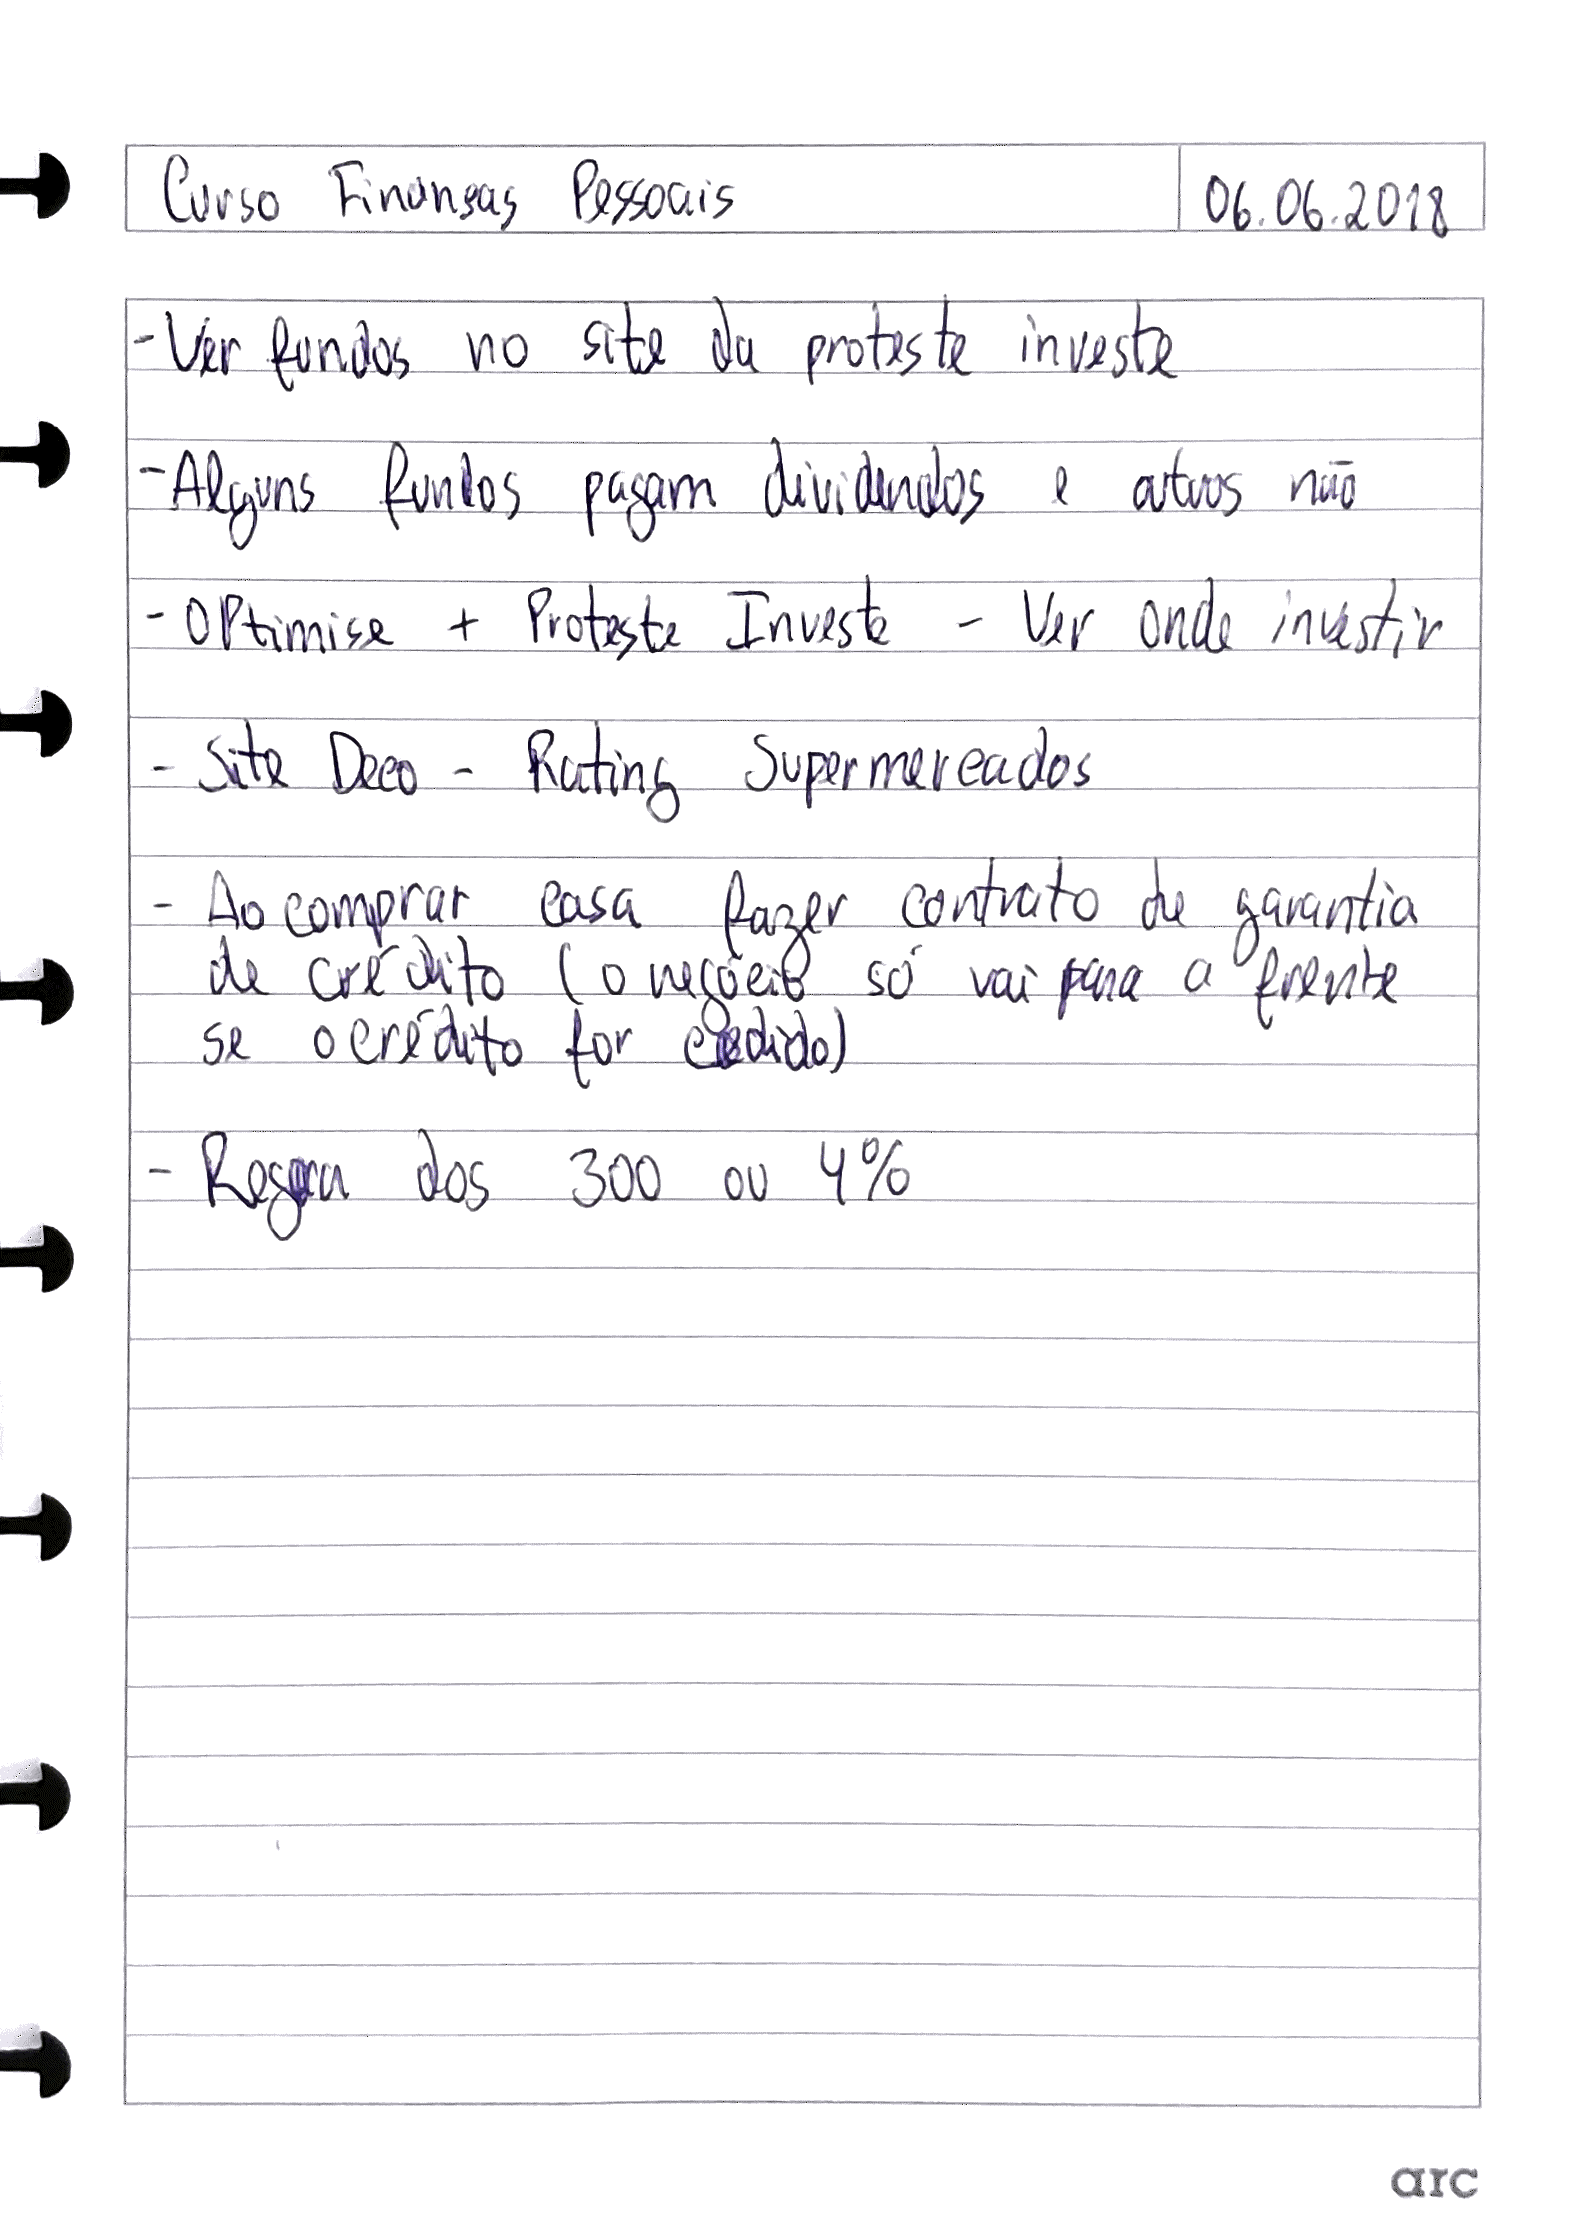 Curso Finanças Pessoais
06.06.2018
- Ver fundos no site da proteste investe
- Alguns fundos pagam dividendos e outros não
- OPtimise + Proteste Investe - Ver onde investir
- Site Deco - Rating Supermercados
- Ao comprar casa fazer contrato de garantia
de crédito (o negócio só vai para a frente
se o crédito for cedido)
- Regra dos 300 ou 4%
arc